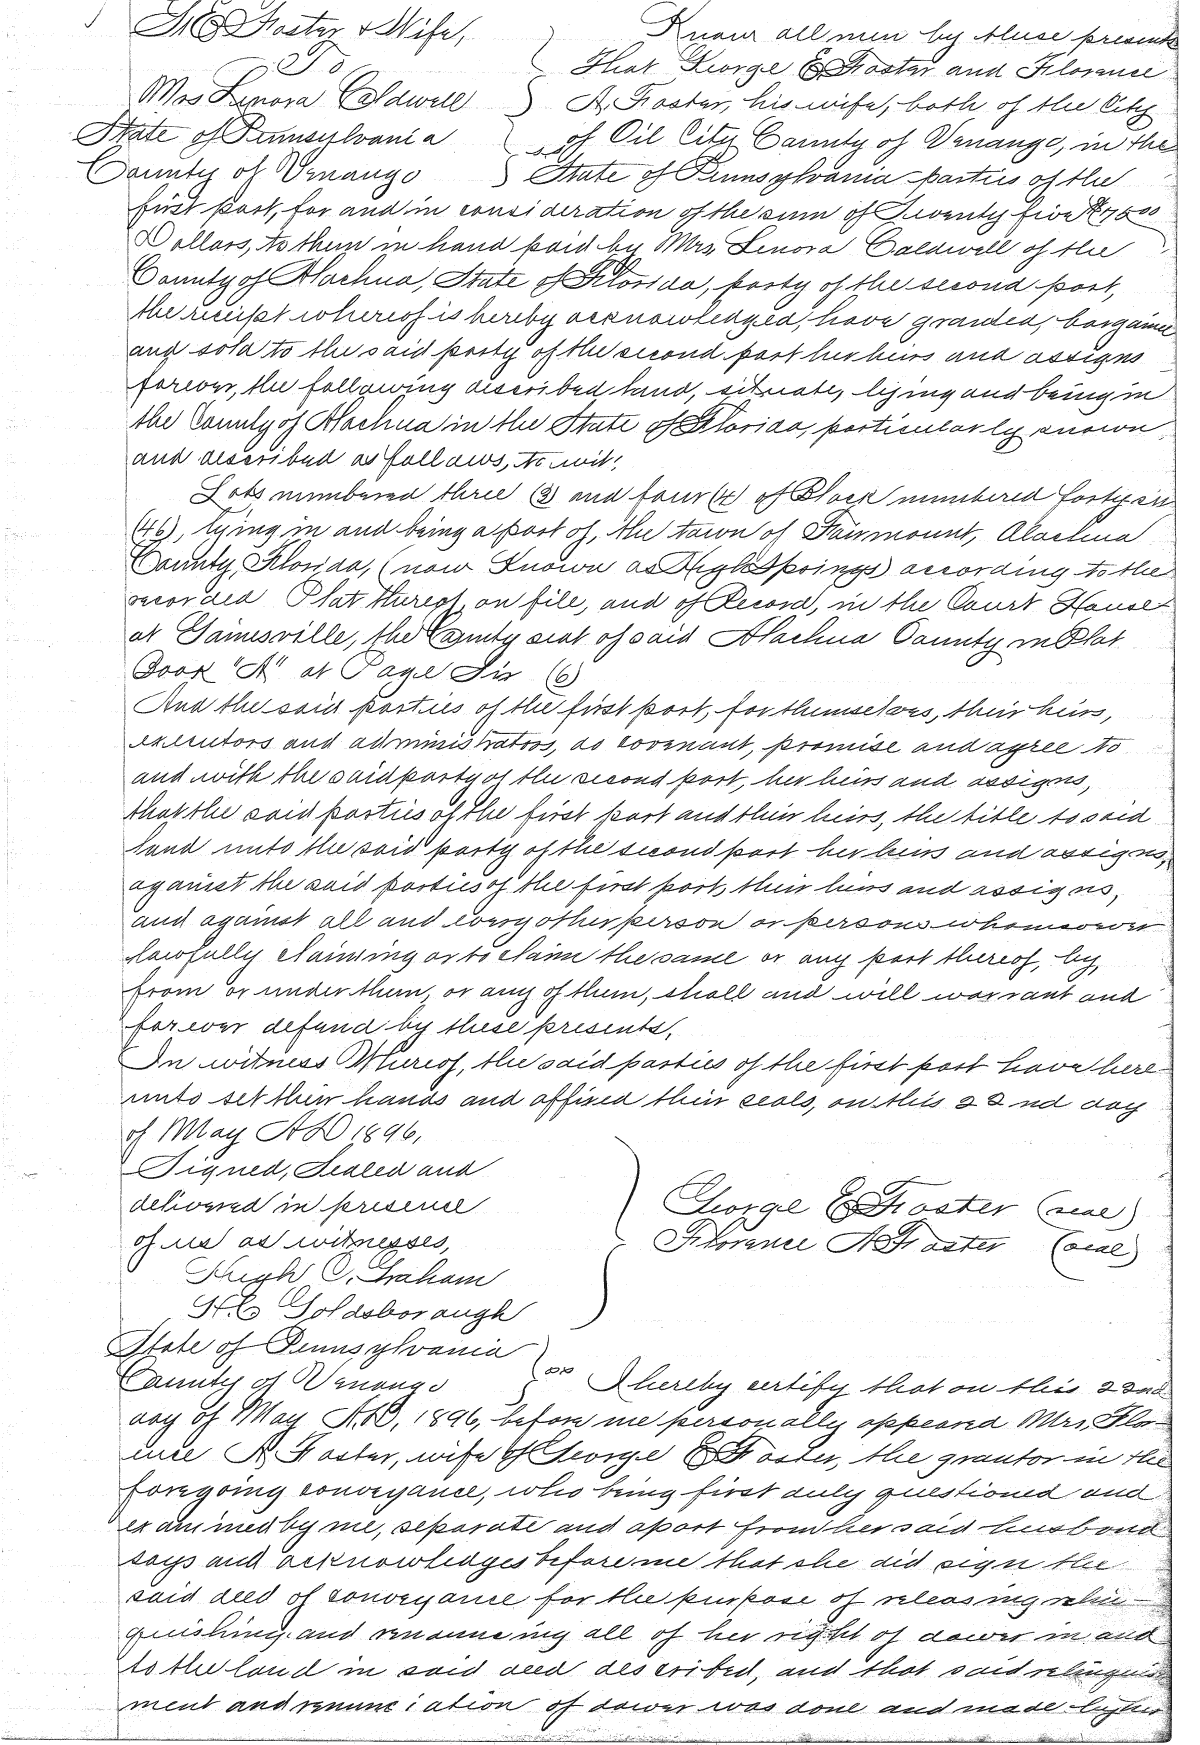 G E Foster & Wife,
To
Mrs Lenora Caldwell
State of Pennsylvania
County of Venango
Know all men by these presents
That George E Foster and Florence
A. Foster, his wife, both of the City
of Oil City County of Venango, in the
State of Pennsylvania parties of the
first part, for and in consideration of the sum of Seventy five $75 00
Dollars, to them in hand paid by Mrs, Lenora Caldwell of the
County of Alachua, State of Florida, party of the second part,
the receipt whereof is hereby acknowledged, have granted, bargained
and sold to the said party of the second part her heirs and assigns
forever, the following described land, situate, lying and being in
the County of Alachua in the State of Florida, particularly known
and described as follows, to wit;
Lots numbered three (3) and four (4) of Block numbered forty six
(46), lying in and being a part of, the town of Fairmount, Alachua
County, Florida, (now Known as High Springs) according to the
recorded Plat thereof, on file, and of Record, in the Court House
at Gainesville, the County seat of said Alachua County in Plat
Book "A" at Page Six (6)
And the said parties of the first part, for themselves, their heirs,
executors and administrators, do covenant, promise and agree to
and with the said party of the second part, her heirs and assigns,
that the said parties of the first part and their heirs, the title to said
land unto the said party of the second part her heirs and assigns,
against the said parties of the first part, their heirs and assigns,
and against all and every other person or persons whomsoever
lawfully claiming or to claim the same or any part thereof, by,
from or under them, or any of them, shall and will warrant and
forever defend by these presents.
In witness Whereof, the said parties of the first part have here-
unto set their hands and affixed their seals, on this 22nd day
of May A D 1896.
Signed, Sealed and
delivered in presence
of us as witnesses,
Hugh C. Graham
H. C Goldsborough
George E Foster (seal)
Florence A Foster (seal)
State of Pennsylvania
County of Venango
ss I hereby certify that on this 22nd
day of May A.D, 1896, before me personally appeared Mrs, Flor-
ence A. Foster, wife of George E Foster, the grantor in the
foregoing conveyance, who being first duly questioned and
examined by me, separate and apart from her said husband
says and acknowledges before me that she did sign the
said deed of conveyance for the purpose of releasing relin-
quishing and renouncing all of her right of dower in and
to the land in said deed described, and that said relinquish
ment and renunciation of dower was done and made by her